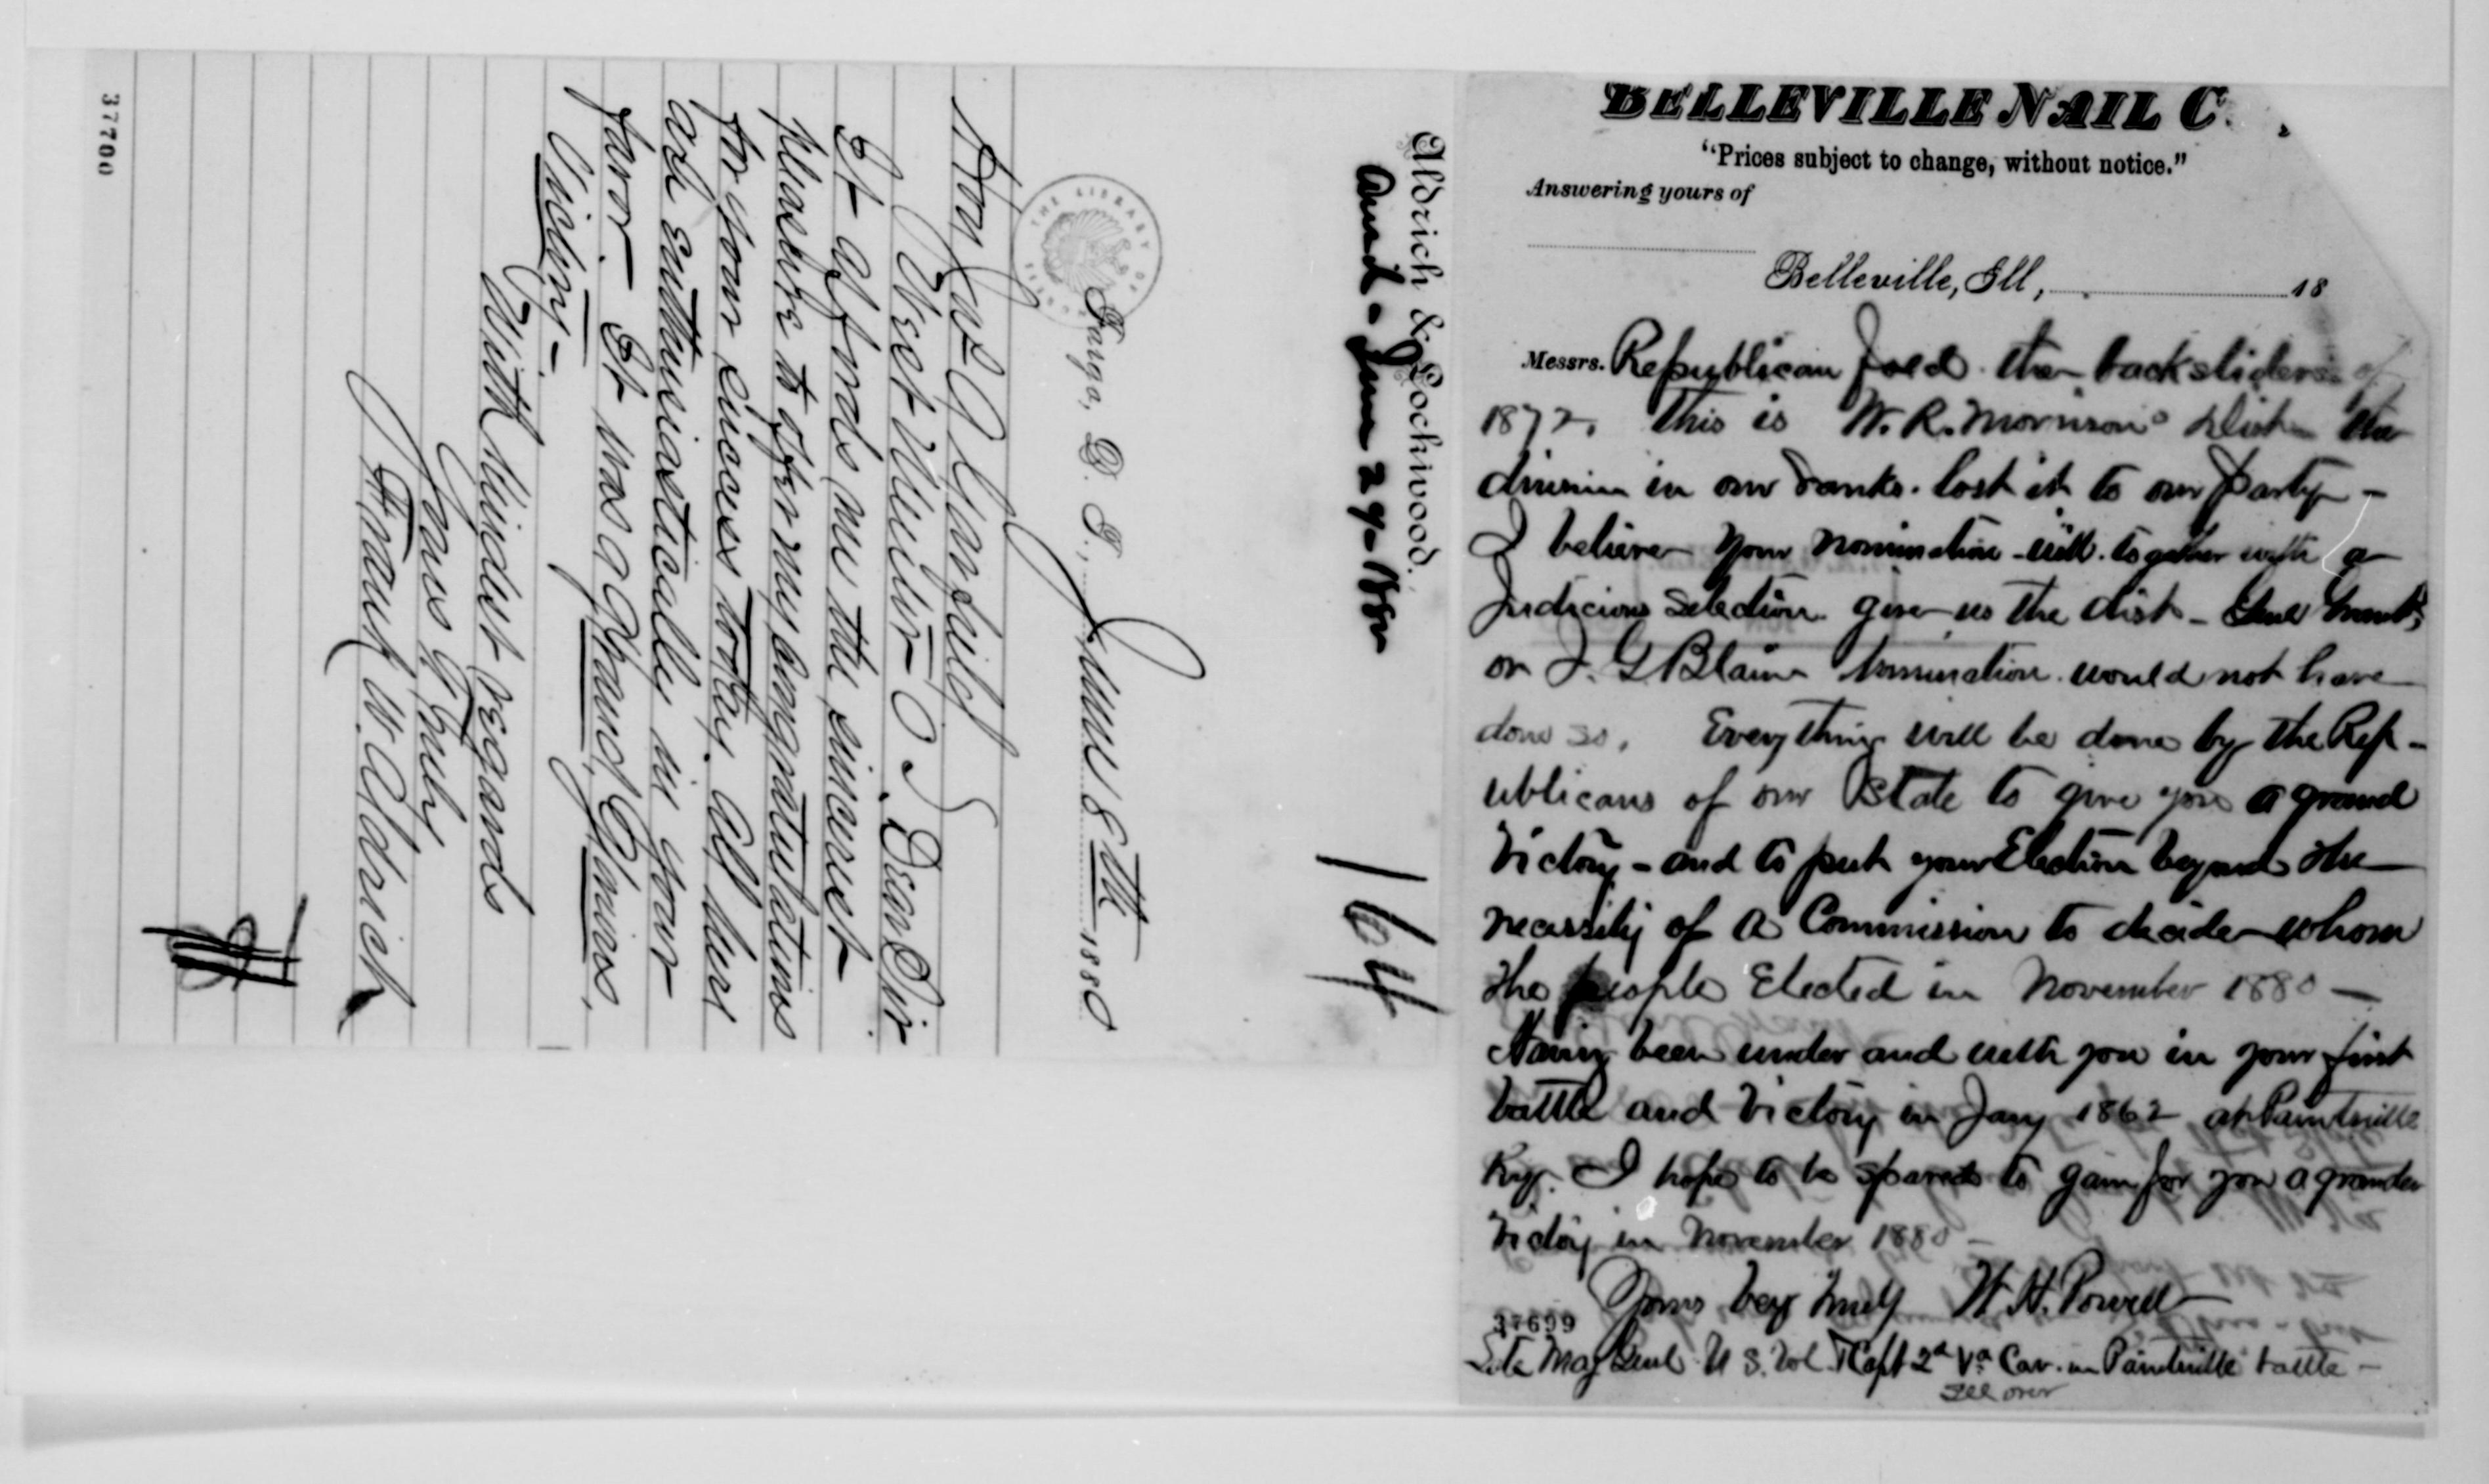 Aldrich & Lockwood.
Ansd - June 29 - 1880
164
Fargo, D. T., June 8th 1880
Hon Jas A Garfield
West Mentor O Dear Sir
It affords me the sincerest
pleasure to offer my congratulations
for your success today. All here
are enthusiastically in your
favor - It was a Grand Glorious,
Victory -
With kindest regards
Yours Truly
Frank W. Aldrich
37700
BELLEVILLE NAIL C
"Prices subject to change, without notice."
Answering yours of
Belleville, Ill, 18
Messrs. Republican fold the backsliders of
1872. This is W. R. Morrison's Dist. the
division in our ranks. lost it to our party -
I believe your nomination will together with a
Judicious selection give us the dist - Genl Grant's
or J. G Blaine nomination would not have
done so. Everything will be done by the Rep-
ublicans of our State to give you a grand
Victory - and to put your Election beyond the
necessity of a Commission to decide whom
the people Elected in November 1880 -
Having been under and with you in your first
battle and Victory in Jany 1862 at Paintville
Ky. I hope to be spared to gain for you a grander
Victory in November 1880 -
Yours very truly W. H. Powell
37699
Late Maj Genl U S. Vol & Capt 2d Va Cav. in Paintville battle -
see over